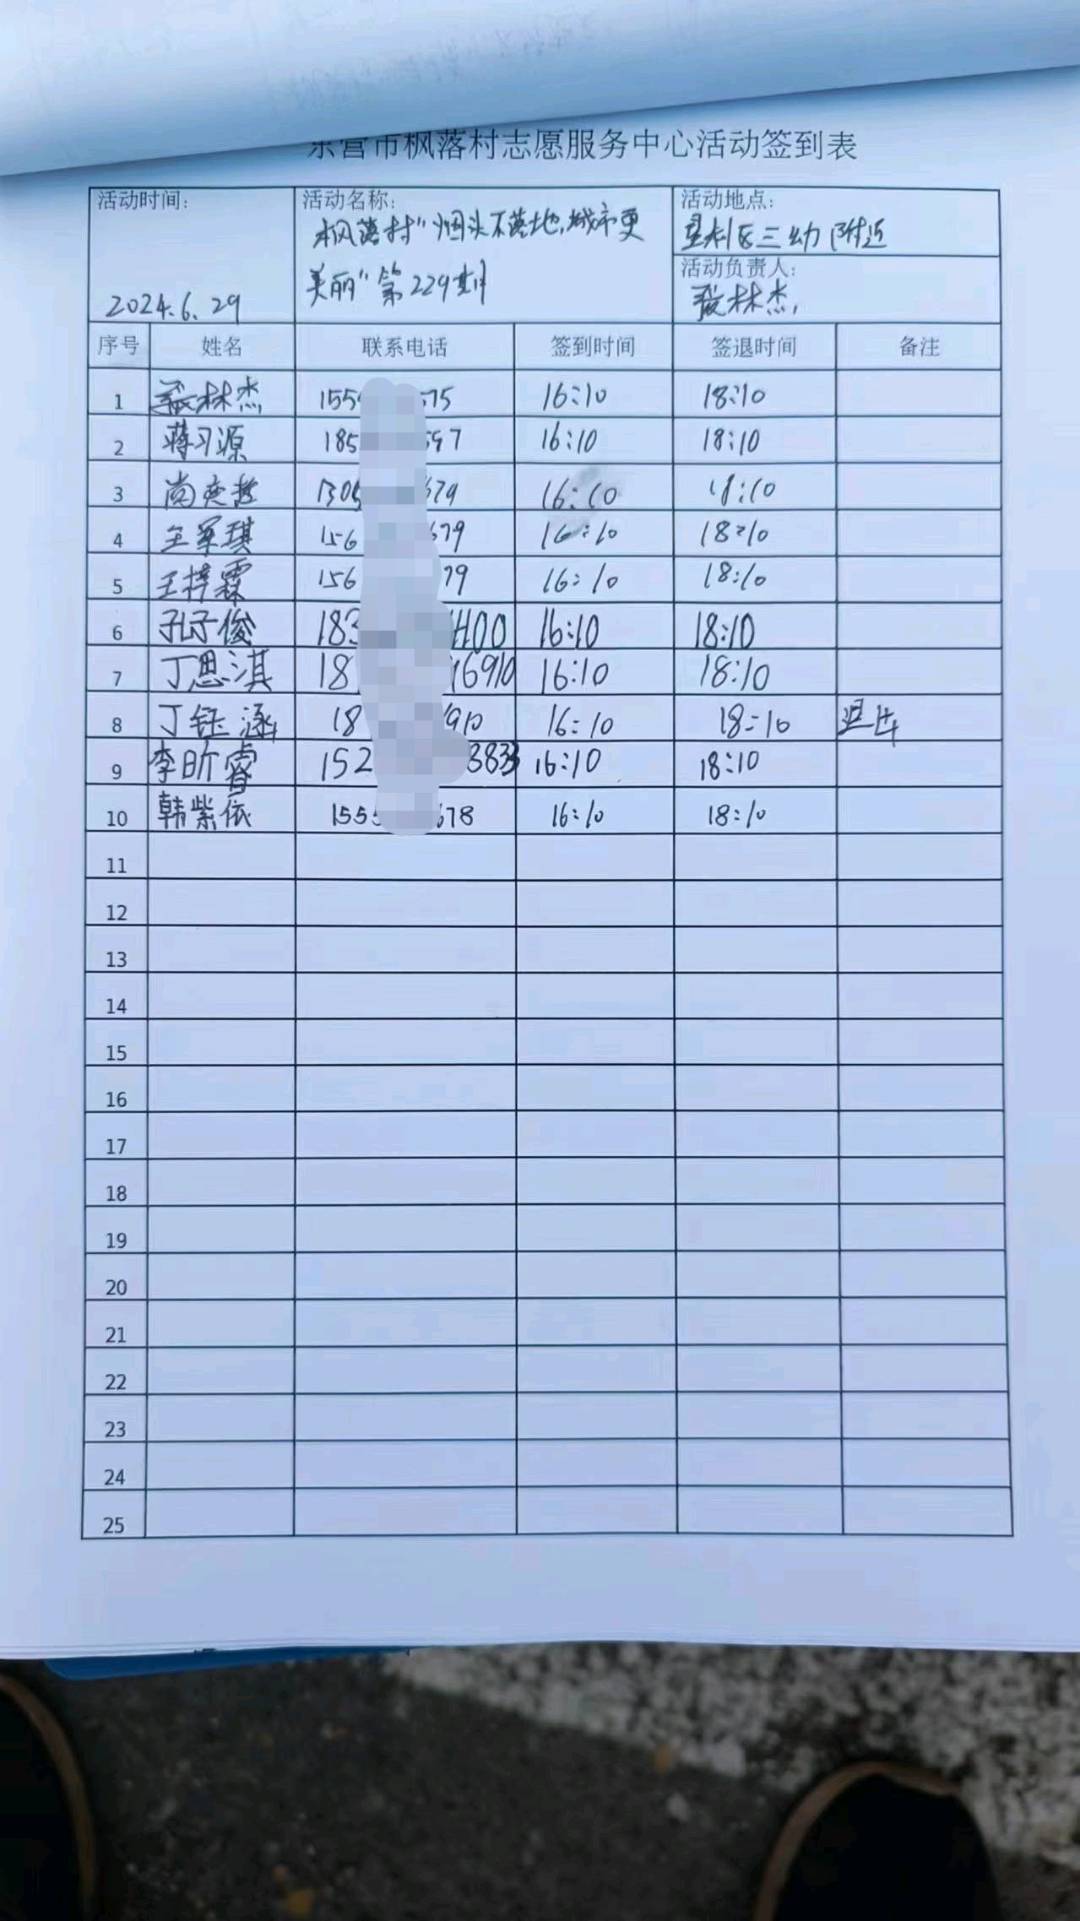 东营市枫落村志愿服务中心活动签到表
活动时间: 2024.6.29
活动名称: 枫落村“烟头不落地,城市更
美丽”第229期
活动地点: 垦利区三幼附近
活动负责人: 张林杰
序号 姓名 联系电话 签到时间 签退时间 备注
1 张林杰 155 75 16:10 18:10
2 蒋习源 185 597 16:10 18:10
3 尚奕哲 1305 679 16:10 18:10
4 王军琪 156 679 16:10 18:10
5 王梓霖 156 79 16:10 18:10
6 孔子俊 183 1400 16:10 18:10
7 丁思淇 18 16910 16:10 18:10
8 丁钰涵 18 910 16:10 18:10
9 李昕睿 152 3833 16:10 18:10
10 韩紫依 155 678 16:10 18:10
11
12
13
14
15
16
17
18
19
20
21
22
23
24
25